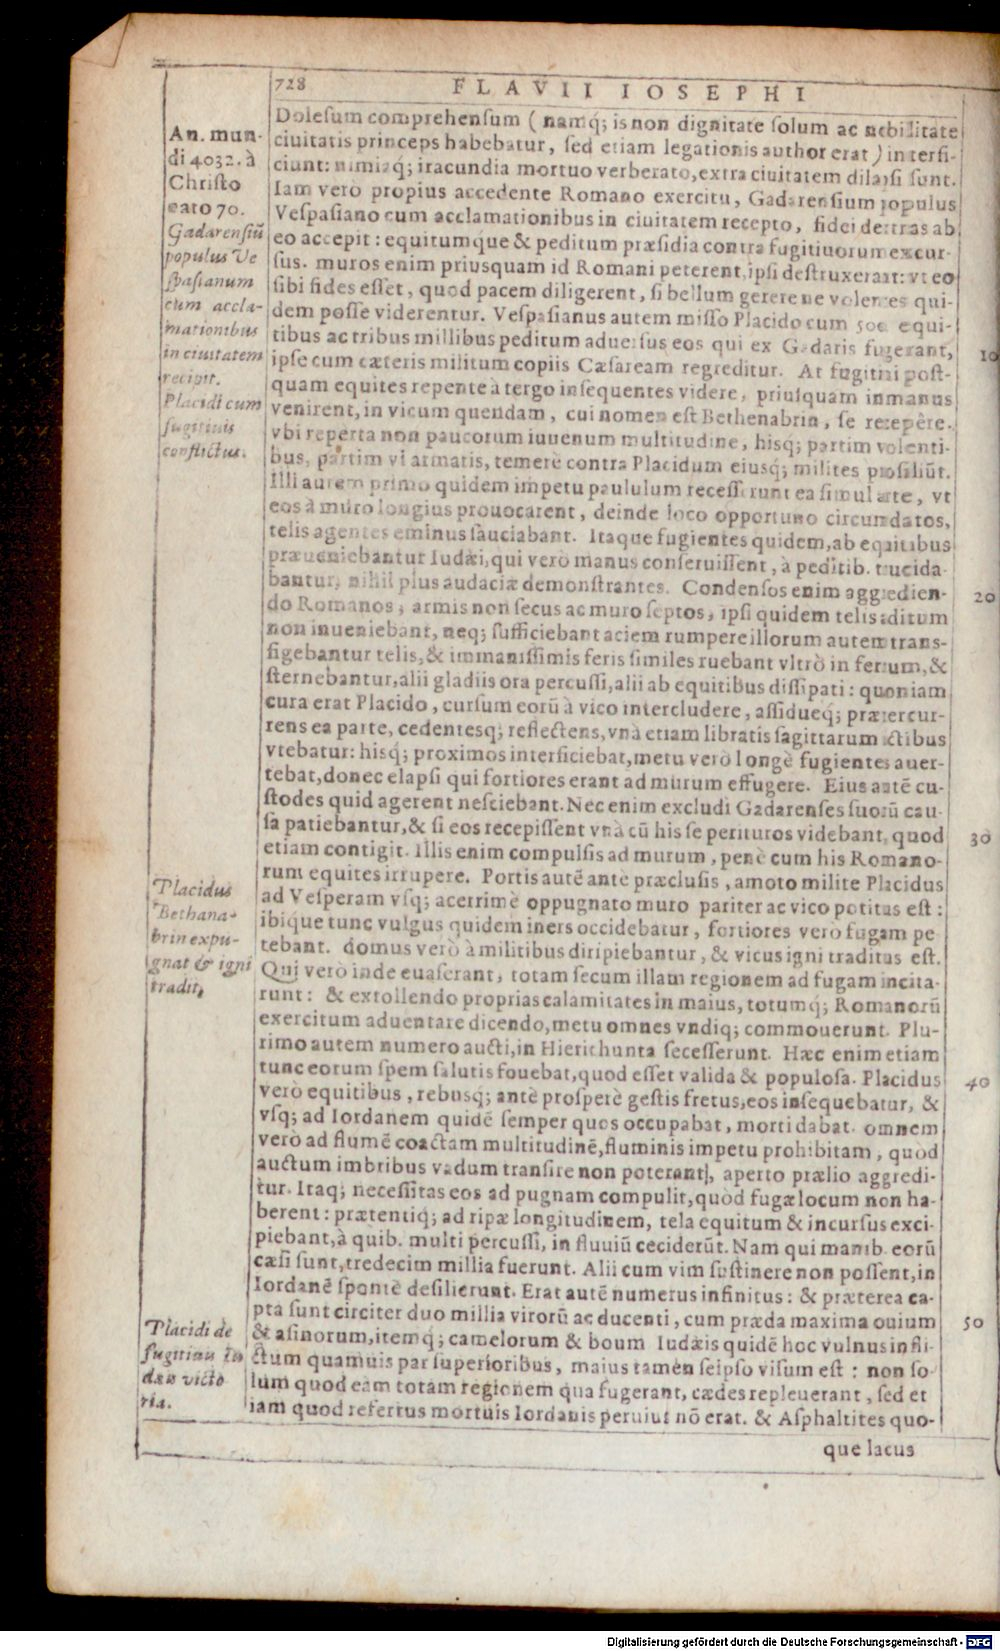 728
FLAVII IOSEPHI
An. mun-
di 4032. à
Christo
nato 70.
Gadarensiũ
populus Ve
spasianum
cum accla-
mationibus
in ciuitatem
recipit.
Placidi cum
fugitiuis
conflictus.
Dolesum comprehensum ( namq́; is non dignitate solum ac nobilitate
ciuitatis princeps habebatur, sed etiam legationis author erat ) interfi-
ciunt: nimiaq́; iracundia mortuo verberato, extra ciuitatem dilapsi sunt.
Iam verò propius accedente Romano exercitu, Gadarensium populus
Vespasiano cum acclamationibus in ciuitatem recepto, fidei dextras ab
eo accepit: equitumque & peditum præsidia contra fugitiuorum excur-
sus. muros enim priusquam id Romani peterent, ipsi destruxerant: vt eo
sibi fides esset, quod pacem diligerent, si bellum gerere ne volentes qui-
dem posse viderentur. Vespasianus autem misso Placido cum 500 equi-
tibus ac tribus millibus peditum aduersus eos qui ex Gadaris fugerant, 10
ipse cum cæteris militum copiis Cæsaream regreditur. At fugitiui post-
quam equites repente à tergo insequentes videre, priusquam in manus
venirent, in vicum quendam, cui nomen est Bethenabrin, se recepêre.
vbi reperta non paucorum iuuenum multitudine, hisq́; partim volenti-
bus, partim vi armatis, temerè contra Placidum eiusq́; milites prosiliũt.
Illi autem primo quidem impetu paululum recesserunt ea simul arte, vt
eos à muro longius prouocarent, deinde loco opportuno circundatos,
telis agentes eminus sauciabant. Itaque fugientes quidem, ab equitibus
præueniebantur Iudæi, qui verò manus conseruissent, à peditib. trucida-
bantur, nihil plus audaciæ demonstrantes. Condensos enim aggredien- 20
do Romanos, armis non secus ac muro septos, ipsi quidem telis aditum
non inueniebant, neq; sufficiebant aciem rumpere illorum autem trans-
figebantur telis, & immanissimis feris similes ruebant vltrò in ferrum, &
sternebantur, alii gladiis ora percussi, alii ab equitibus dissipati: quoniam
cura erat Placido, cursum eorũ à vico intercludere, assidueq́; prætercur-
rens ea parte, cedentesq; reflectens, vnà etiam libratis sagittarum ictibus
vtebatur: hisq́; proximos interficiebat, metu verò longè fugientes auer-
tebat, donec elapsi qui fortiores erant ad murum effugere. Eius autẽ cu-
stodes quid agerent nesciebant. Nec enim excludi Gadarenses suorũ cau-
sa patiebantur, & si eos recepissent vnà cũ his se perituros videbant, quod 30
etiam contigit. Illis enim compulsis ad murum, penè cum his Romano-
rum equites irrupere. Portis autẽ antè præclusis, amoto milite Placidus
ad Vesperam vsq; acerrimè oppugnato muro pariter ac vico potitus est:
ibique tunc vulgus quidem iners occidebatur, fortiores verò fugam pe
tebant. domus verò à militibus diripiebantur, & vicus igni traditus est.
Placidus
Bethana-
brin expu-
gnat & igni
tradit.
Qui verò inde euaserant, totam secum illam regionem ad fugam incita-
runt: & extollendo proprias calamitates in maius, totumq́; Romanorũ
exercitum aduentare dicendo, metu omnes vndiq; commouerunt. Plu-
rimo autem numero aucti, in Hierichunta secesserunt. Hæc enim etiam
tunc eorum spem salutis fouebat, quod esset valida & populosa. Placidus 40
verò equitibus, rebusq́; antè prosperè gestis fretus, eos insequebatur, &
vsq; ad Iordanem quidẽ semper quos occupabat, morti dabat. omnem
verò ad flumẽ coactam multitudinẽ, fluminis impetu prohibitam, quòd
auctum imbribus vadum transire non poterant], aperto prælio aggredi-
tur. Itaq; necessitas eos ad pugnam compulit, quòd fugæ locum non ha-
berent: prætentiq́; ad ripæ longitudinem, tela equitum & incursus exci-
piebant, à quib. multi percussi, in fluuiũ ceciderũt. Nam qui manib. eorũ
cæsi sunt, tredecim millia fuerunt. Alii cum vim sustinere non possent, in
Iordanẽ spontè desilierunt. Erat autẽ numerus infinitus: & præterea ca-
pta sunt circiter duo millia virorũ ac ducenti, cum præda maxima ouium 50
& asinorum, itemq́; camelorum & boum Iudæis quidẽ hoc vulnus infli-
ctum quamuis par superioribus, maius tamen seipso visum est: non so-
lum quod eam totam regionem qua fugerant, cædes repleuerant, sed et
iam quod refertus mortuis Iordanis peruius nõ erat. & Asphaltites quo-
Placidi de
fugitiuis Iu
dæis victo
ria.
que lacus
Digitalisierung gefördert durch die Deutsche Forschungsgemeinschaft - DFG